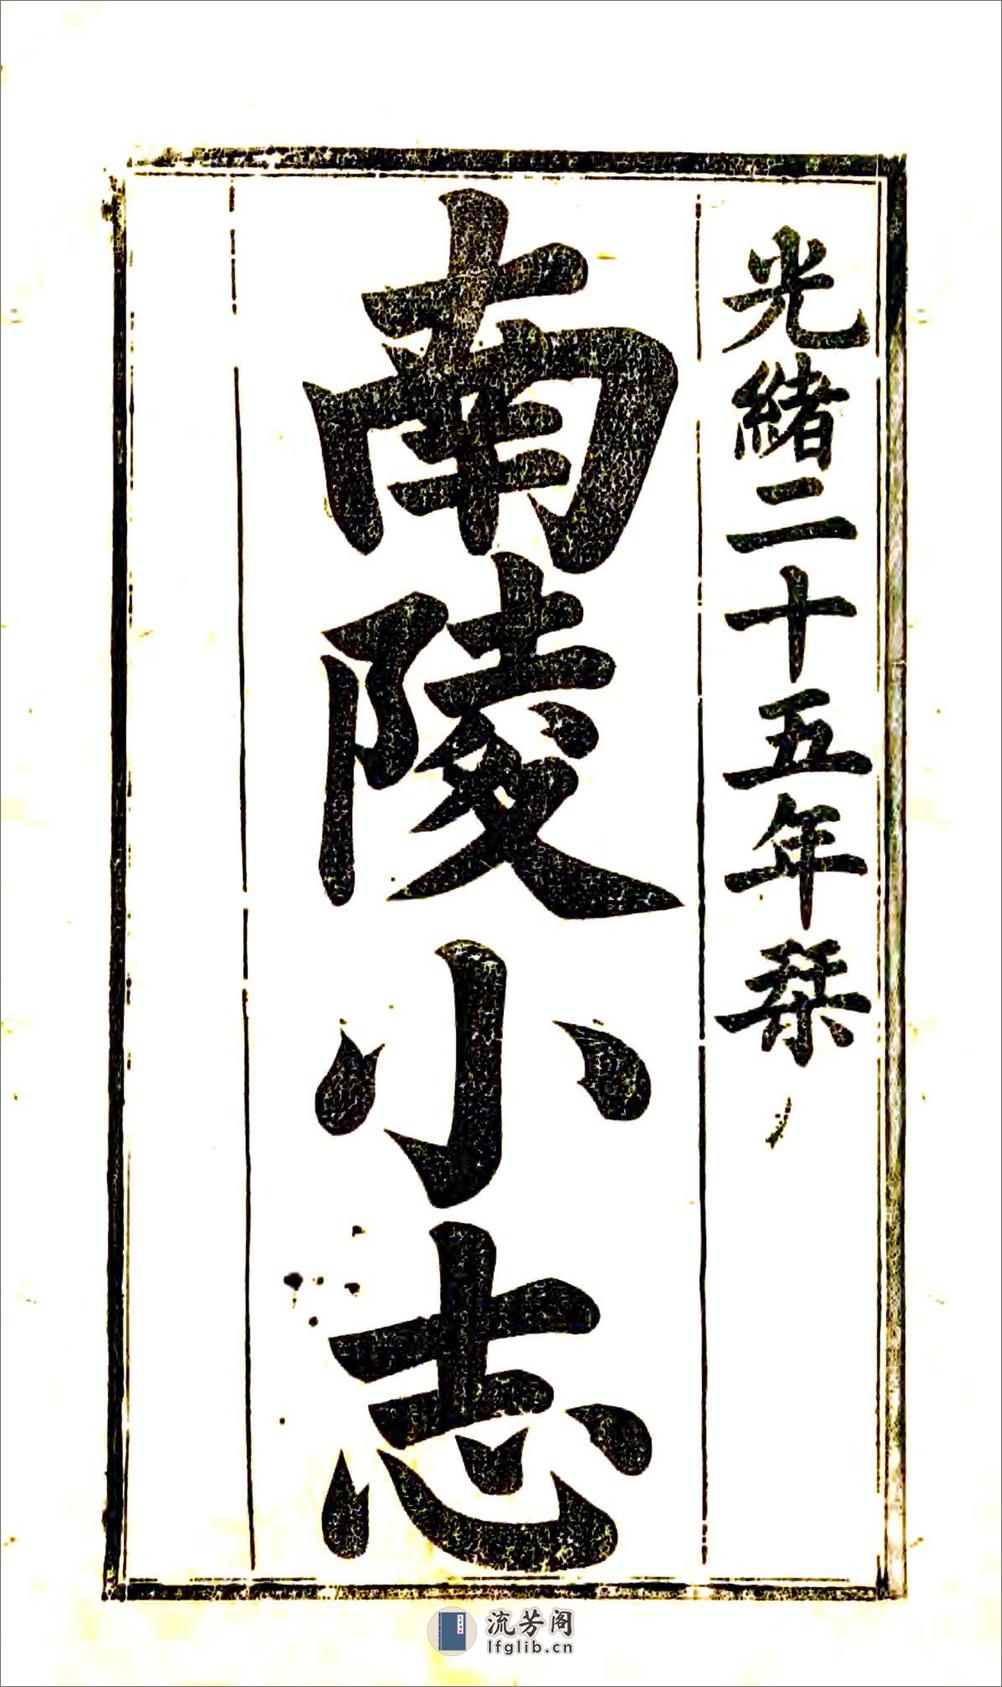 光緒二十五年栞
南陵小志
流芳阁
lfglib.cn